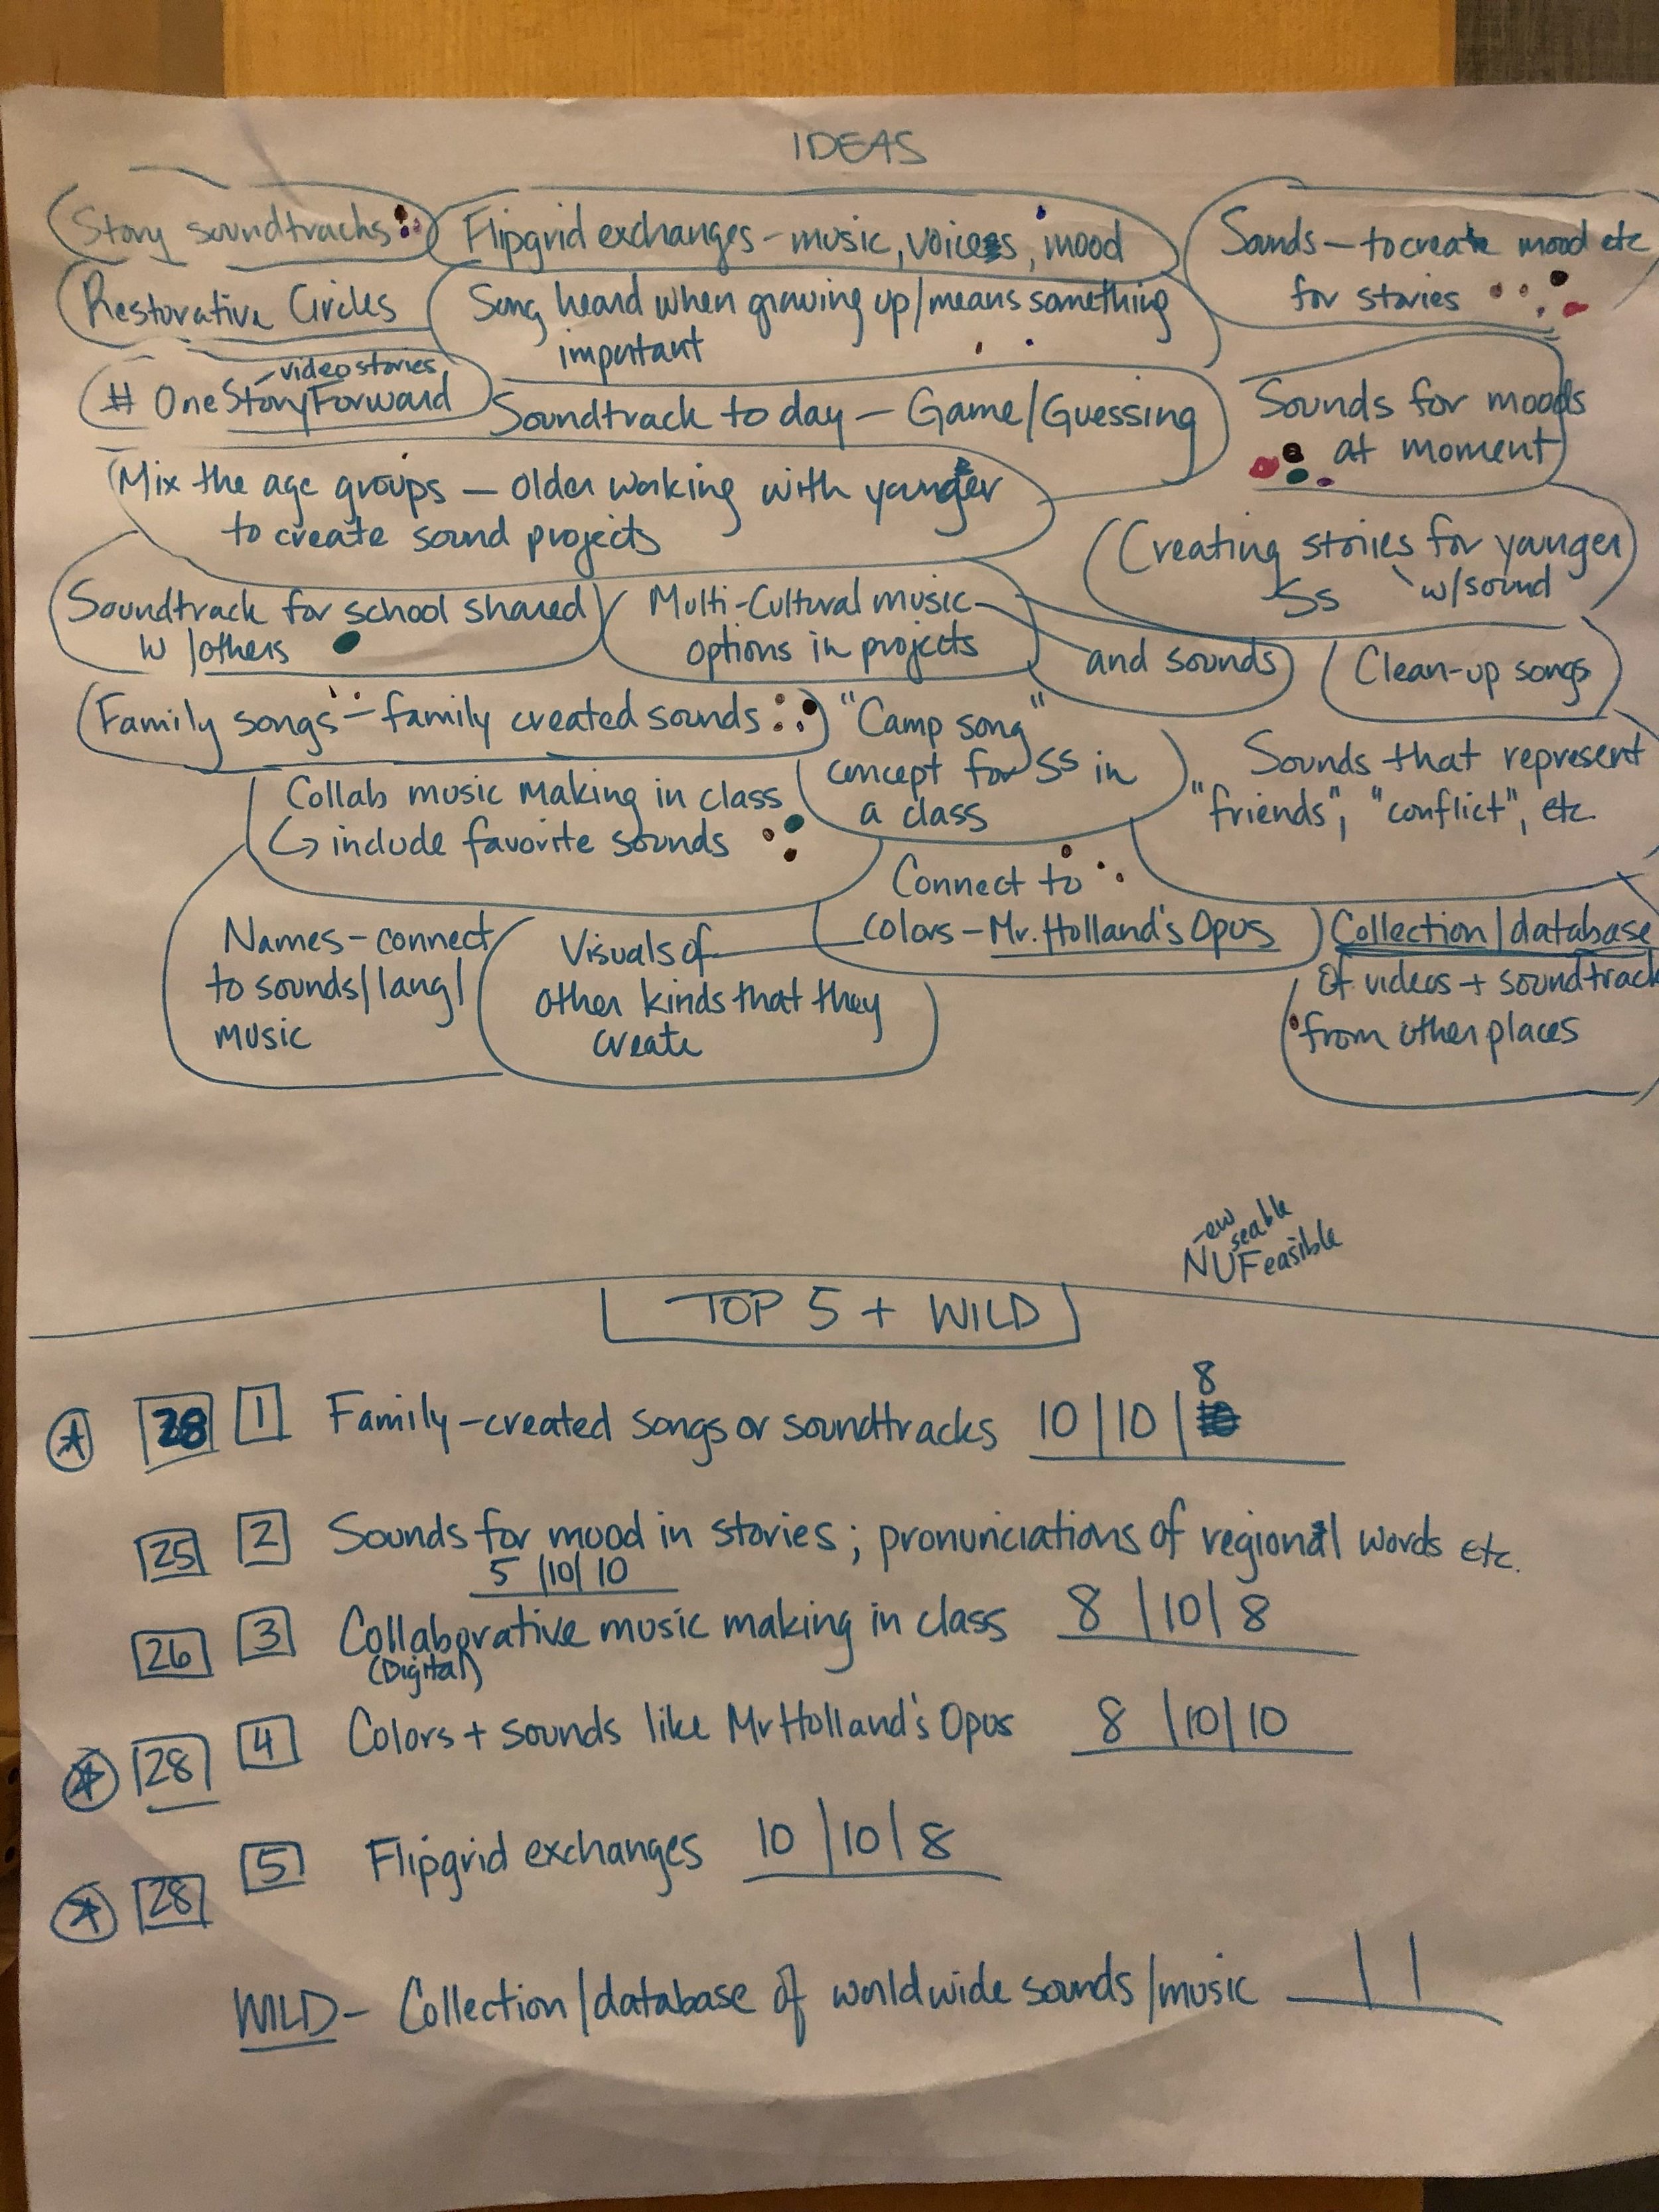 IDEAS
Story soundtracks
Flipgrid exchanges - music, voices, mood
Sounds - to create mood etc
for stories
Restorative Circles
Song heard when growing up/means something
important
- video stories
# OneStoryForward
Soundtrack to day - Game/Guessing
Sounds for moods
at moment
Mix the age groups - older working with younger
to create sound projects
Creating stories for younger
Ss w/sound
Soundtrack for school shared
w/others
Multi-Cultural music
options in projects
and sounds
Clean-up songs
Family songs - family created sounds
"Camp song"
concept for Ss in
a class
Sounds that represent
"friends", "conflict", etc.
Collab music making in class
↳ include favorite sounds
Connect to
colors - Mr. Holland's Opus
Names - connect
to sounds/lang/
music
Visuals of
other kinds that they
create
Collection/database
of videos + soundtrack
from other places
-ew seable
NUFeasible
TOP 5 + WILD
28 1 Family-created songs or soundtracks 10|10|8
25 2 Sounds for mood in stories; pronunciations of regional words etc.
5|10|10
26 3 Collaborative music making in class 8|10|8
(Digital)
28 4 Colors + sounds like Mr Holland's Opus 8|10|10
28 5 Flipgrid exchanges 10|10|8
WILD - Collection/database of worldwide sounds/music